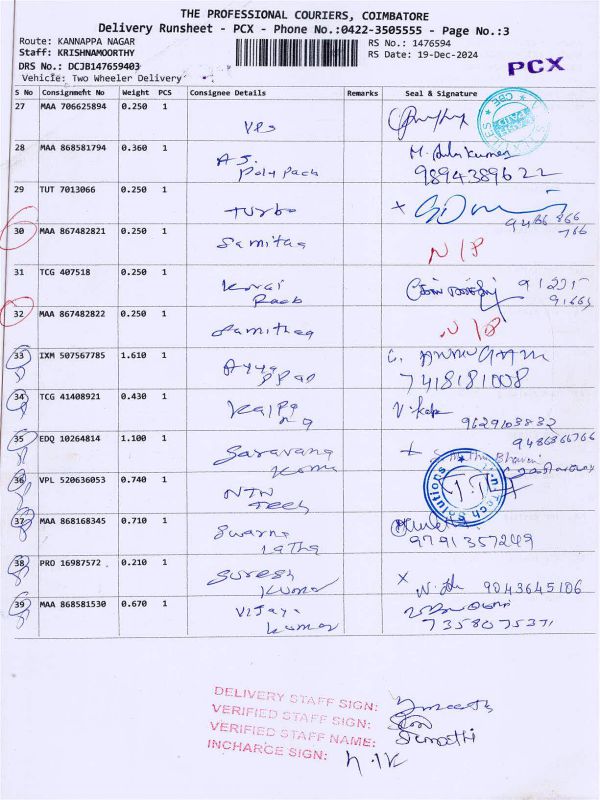 THE PROFESSIONAL COURIERS, COIMBATORE
Delivery Runsheet - PCX - Phone No.:0422-3505555 - Page No.:3
Route: KANNAPPA NAGAR RS No.: 1476594
Staff: KRISHNAMOORTHY RS Date: 19-Dec-2024
DRS No.: DCJB147659403 PCX
Vehicle: Two Wheeler Delivery
S No Consignment No Weight PCS Consignee Details Remarks Seal & Signature
27 MAA 706625894 0.250 1
28 MAA 868581794 0.360 1 AJ. M.
Poly Pack 9894389622
29 TUT 7013066 0.250 1
Turbo x
30 MAA 867482821 0.250 1 Samitaa
N/P
31 TCG 407518 0.250 1
Kovai
32 MAA 867482822 0.250 1
N/P
33 IXM 507567785 1.610 1
7418181008
34 TCG 41408921 0.430 1 Kalpa
na 9629103832
35 EDQ 10264814 1.100 1 9486866766
Saravana
Kumar
36 VPL 520636053 0.740 1 NTN
Tech Tech Solutions
37 MAA 868168345 0.710 1 Swarna
Latha 9791357249
38 PRO 16987572 0.210 1 Suresh
Kumar x 9043645106
39 MAA 868581530 0.670 1 Vijaya
Kumar 7358075371
DELIVERY STAFF SIGN:
VERIFIED STAFF SIGN:
VERIFIED STAFF NAME:
INCHARGE SIGN: